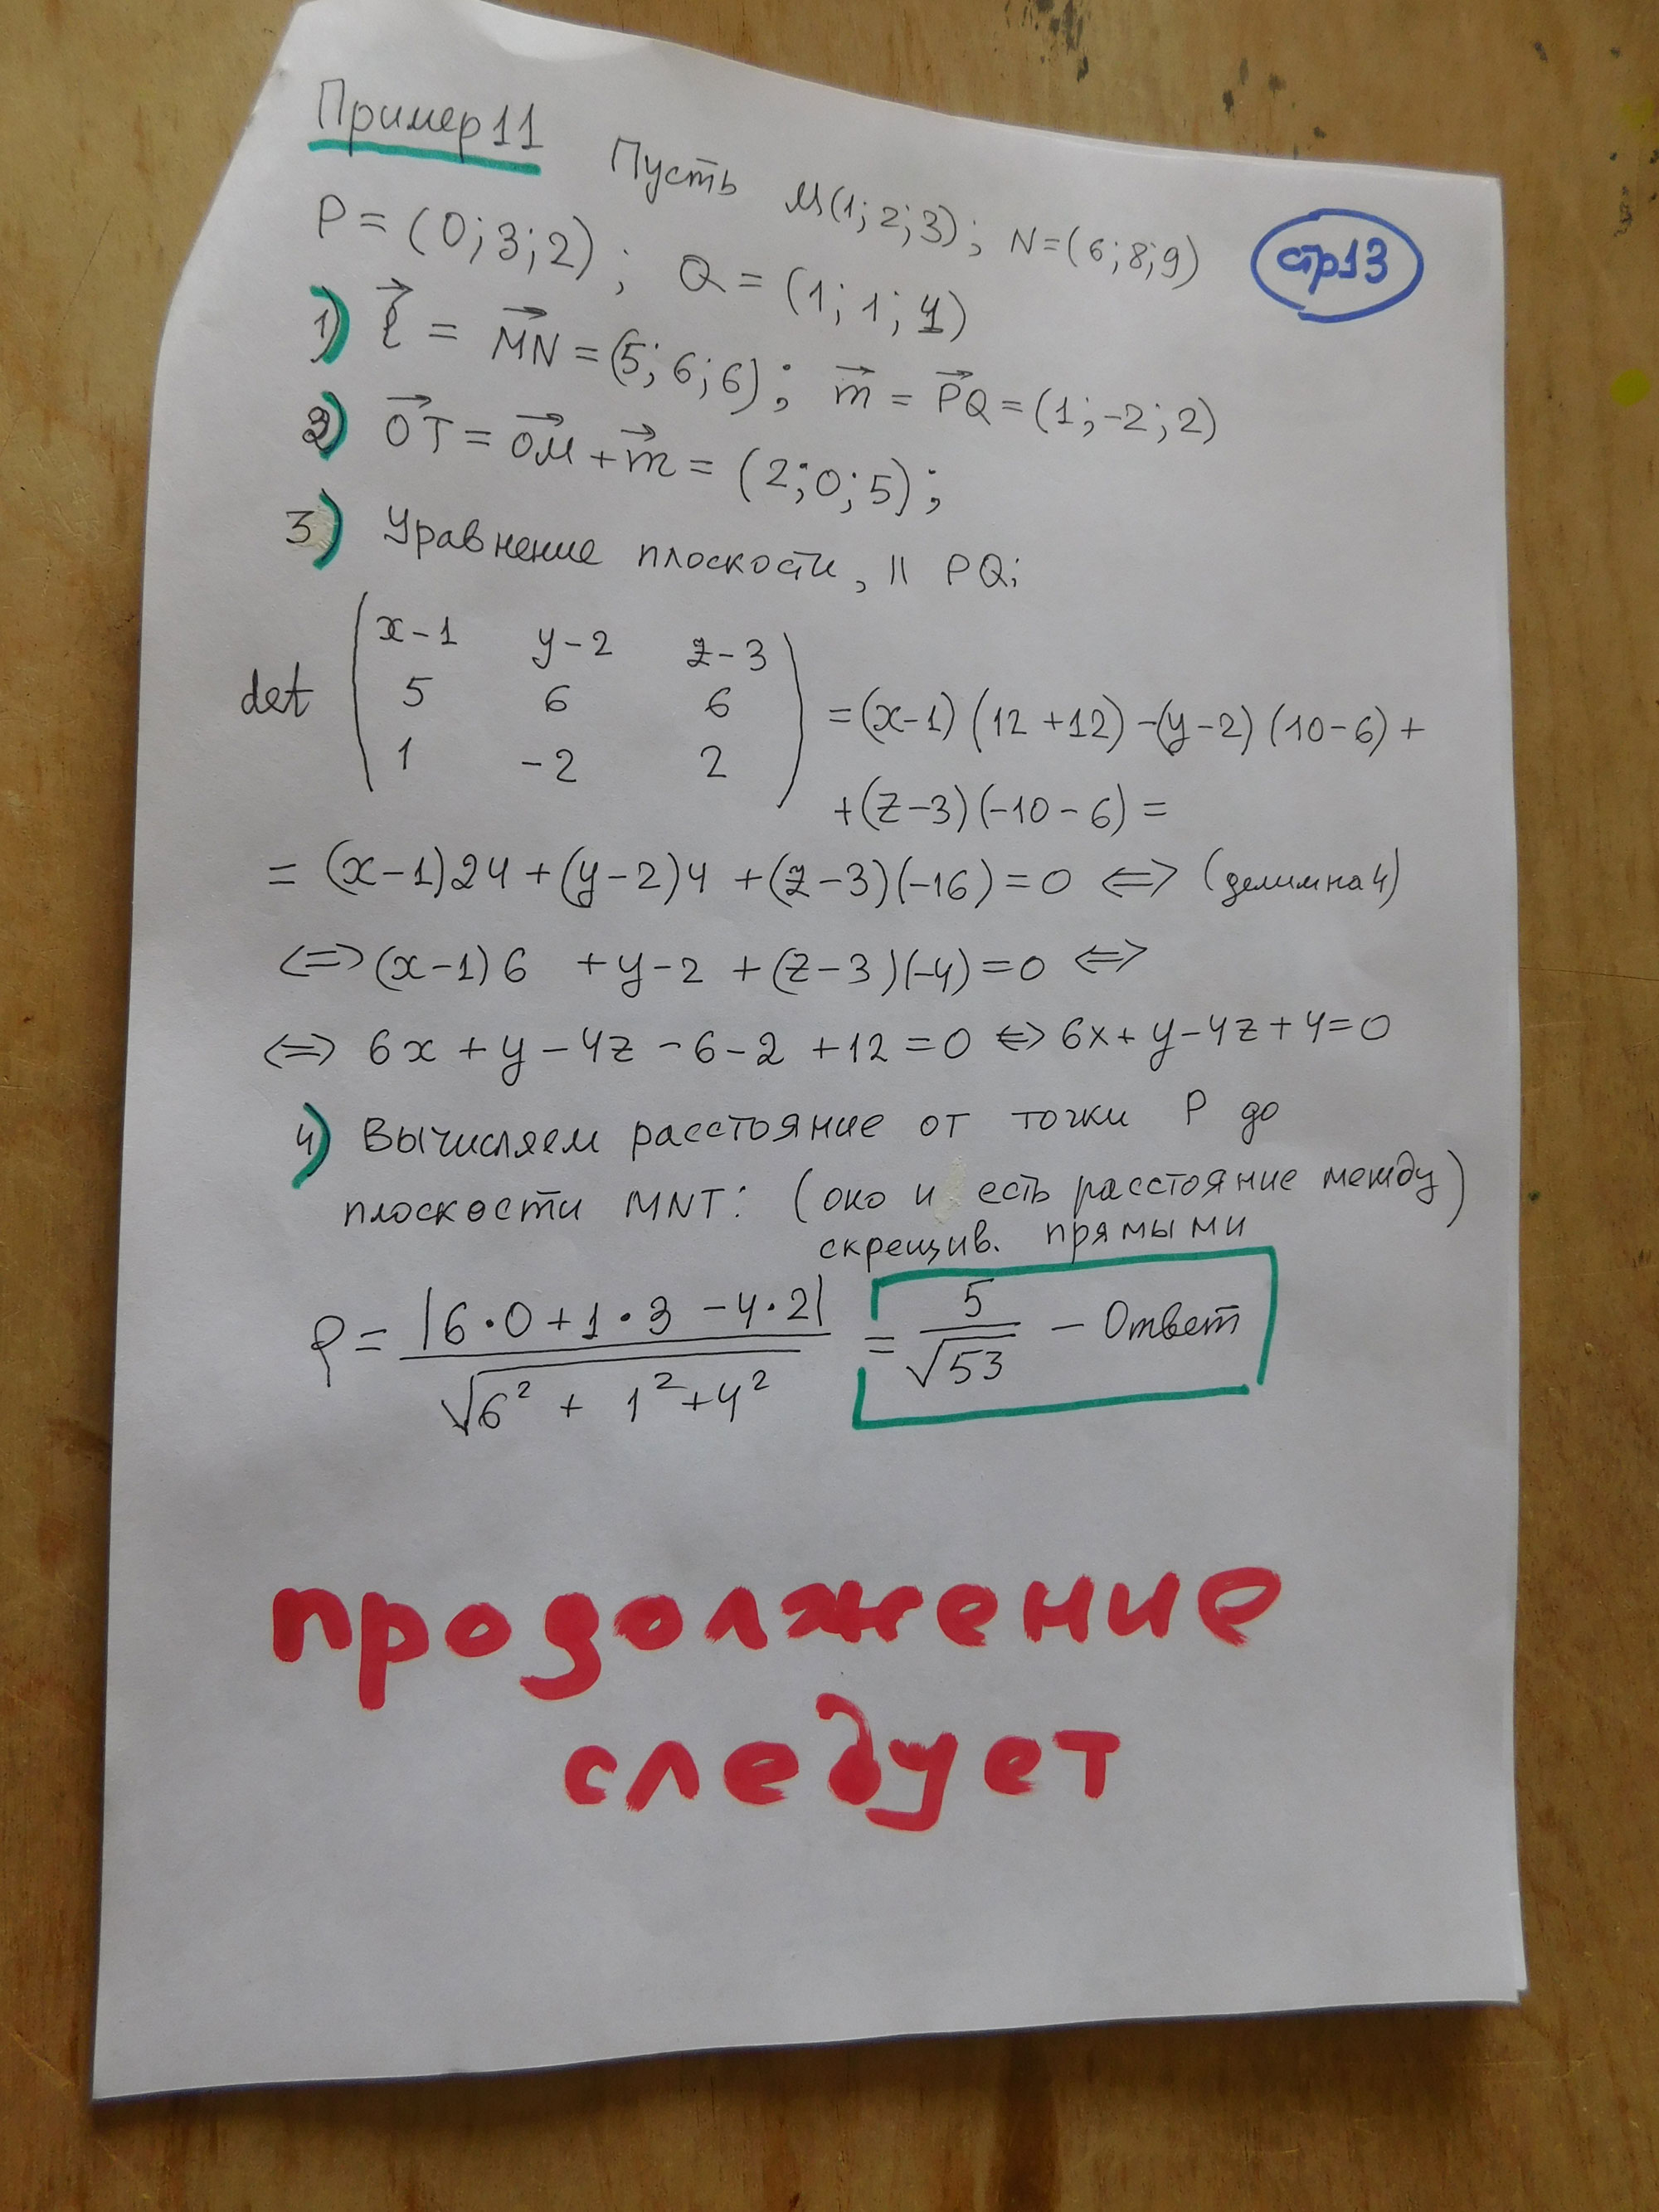 Пример 11 Пусть M(1; 2; 3); N=(6; 8; 9)
стр 13
P = (0; 3; 2); Q = (1; 1; 4)
1) ℓ⃗ = MN⃗ = (5; 6; 6); m⃗ = PQ⃗ = (1; -2; 2)
2) OT⃗ = OM⃗ + m⃗ = (2; 0; 5);
3) Уравнение плоскости, || PQ;
x-1 y-2 z-3
det 5 6 6 = (x-1)(12+12)-(y-2)(10-6)+
1 -2 2
+(z-3)(-10-6) =
= (x-1)24+(y-2)4+(z-3)(-16)=0 <=> (делим на 4)
<=> (x-1)6 +y-2 +(z-3)(-4)=0 <=>
<=> 6x+y-4z-6-2+12=0 <=> 6x+y-4z+4=0
4) Вычисляем расстояние от точки P до
плоскости MNT: (оно и есть расстояние между
скрещив. прямыми)
ρ = |6·0+1·3-4·2| / √6²+1²+4² = 5/√53 - Ответ
продолжение
следует